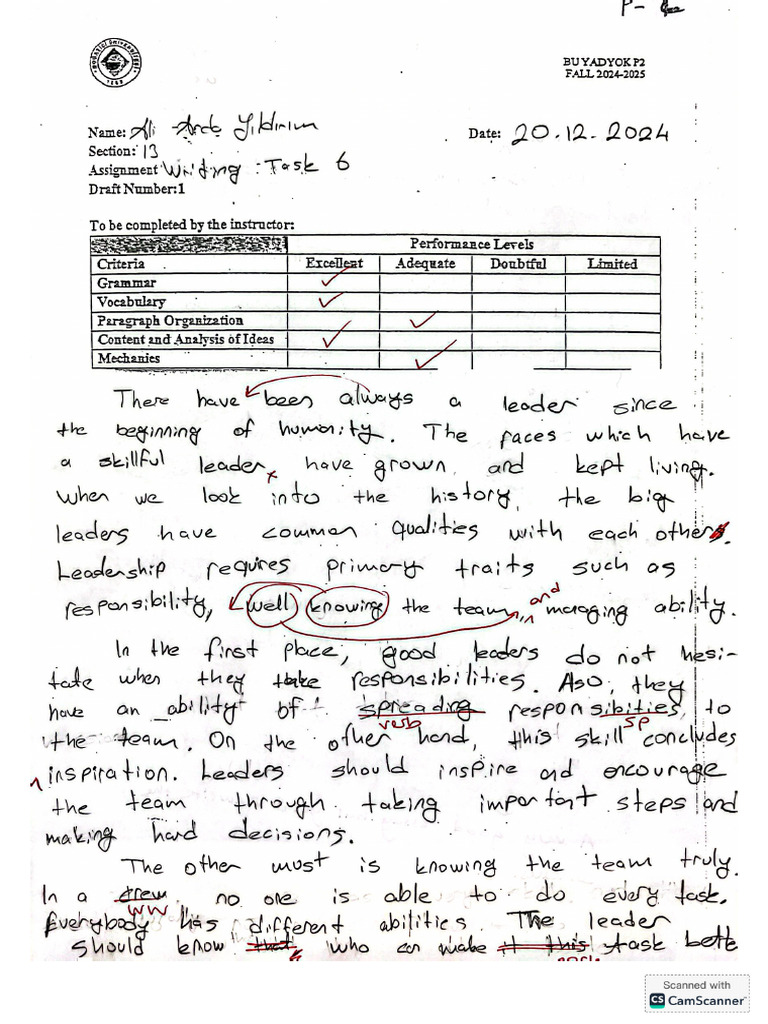 P-
BOĞAZİÇİ ÜNİVERSİTESİ
1863
BU YADYOK P2
FALL 2024-2025
Name: Ali Arda Yıldırım
Date: 20.12.2024
Section: 13
Assignment Writing : Task 6
Draft Number:1
To be completed by the instructor:
Performance Levels
Criteria Excellent Adequate Doubtful Limited
Grammar ✓
Vocabulary ✓
Paragraph Organization ✓
Content and Analysis of Ideas ✓
Mechanics ✓
There have been always a leader since
the beginning of humanity. The races which have
a skillful leader, have grown and kept living.
When we look into the history, the big
leaders have common qualities with each others.
Leadership requires primary traits such as
responsibility, well knowing the team, and managing ability.
In the first place, good leaders do not hesi-
tate when they take responsibilities. Also, they
have an ability of spreading responsibities to
verb sp
the team. On the other hand, this skill concludes
inspiration. Leaders should inspire and encourage
the team through taking important steps and
making hard decisions.
The other must is knowing the team truly.
In a crew no one is able to do every task.
WW
Everybody has different abilities. The leader
should know that who can make it this task bette
Scanned with
CS CamScanner